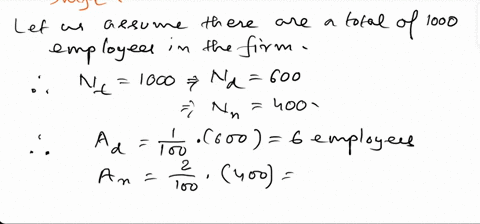 Let us assume there are a total of 1000
employees in the firm.
∴ N_t = 1000 ⇒ N_d = 600
⇒ N_n = 400.
∴ A_d = 1/100 · (600) = 6 employees
A_n = 2/100 · (400) =